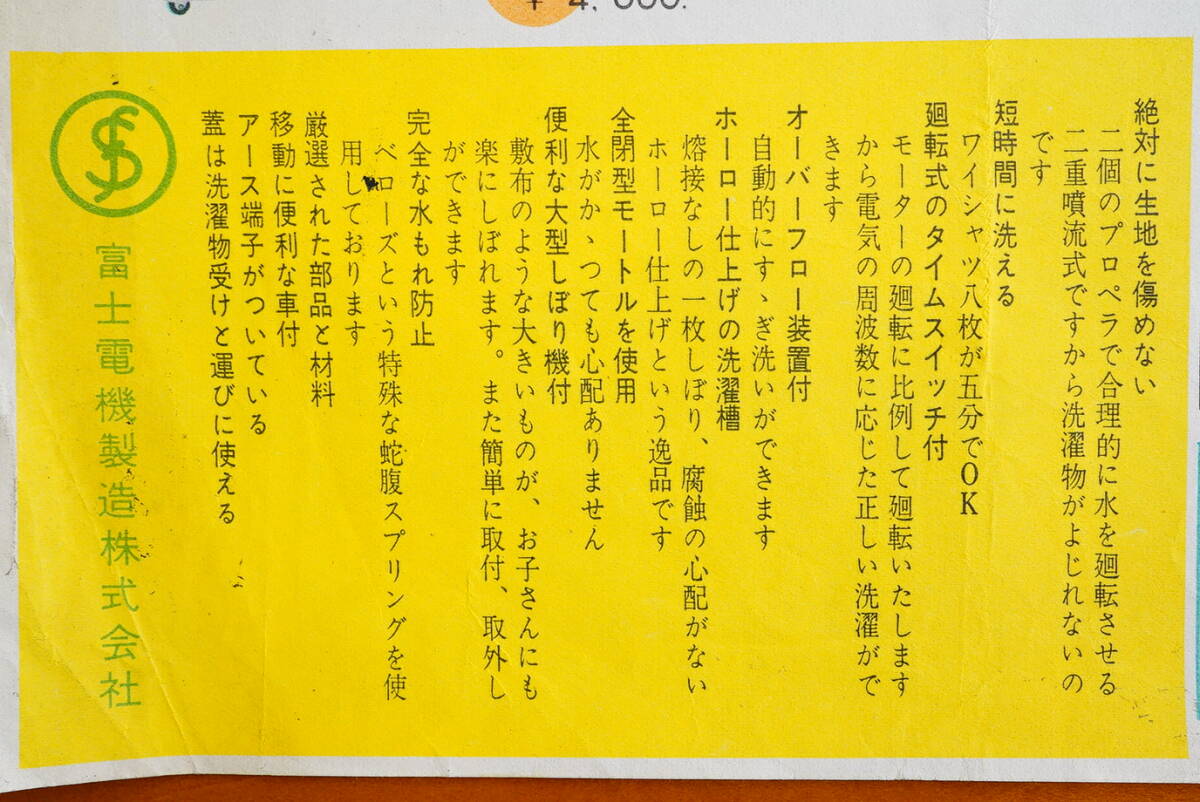 ¥ 4,000.
絶対に生地を傷めない
二個のプロペラで合理的に水を廻転させる
二重噴流式ですから洗濯物がよじれないの
です
短時間に洗える
ワイシャツ八枚が五分でOK
廻転式のタイムスイッチ付
モーターの廻転に比例して廻転いたします
から電気の周波数に応じた正しい洗濯がで
きます
オーバーフロー装置付
自動的にすゝぎ洗いができます
ホーロー仕上げの洗濯槽
熔接なしの一枚しぼり、腐蝕の心配がない
ホーロー仕上げという逸品です
全閉型モートルを使用
水がかゝつても心配ありません
便利な大型しぼり機付
敷布のような大きいものが、お子さんにも
楽にしぼれます。また簡単に取付、取外し
ができます
完全な水もれ防止
ベローズという特殊な蛇腹スプリングを使
用しております
厳選された部品と材料
移動に便利な車付
アース端子がついている
蓋は洗濯物受けと運びに使える
富士電機製造株式会社